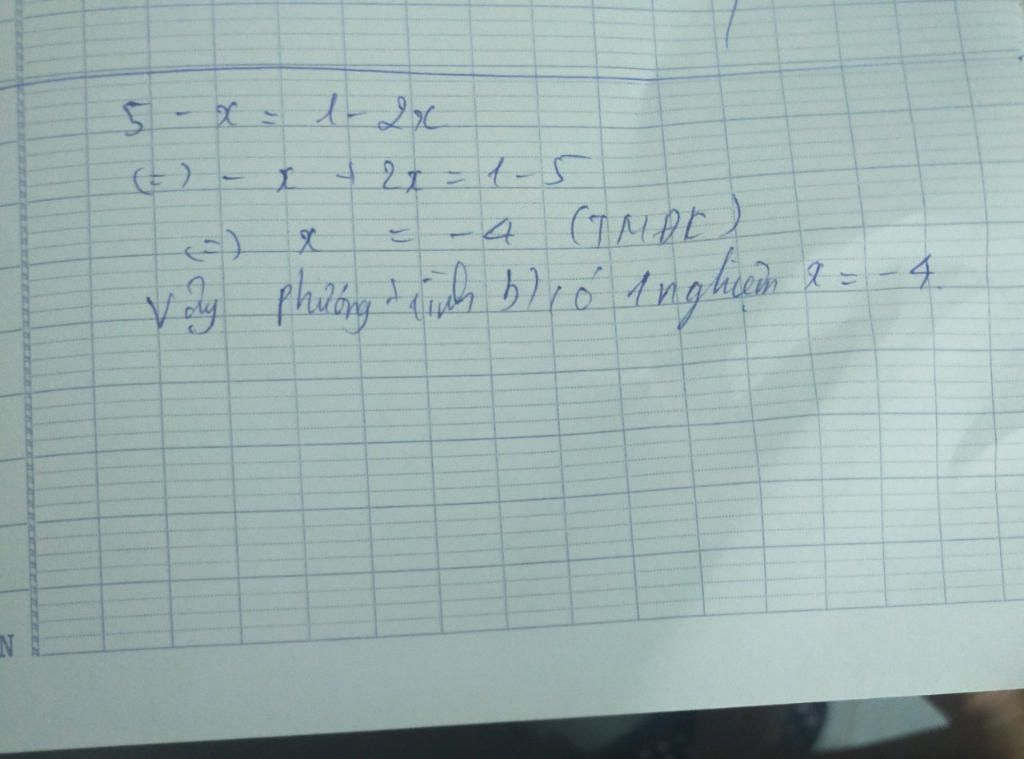 5 - x = 1 - 2x
(=) - x + 2x = 1 - 5
(=) x = -4 (TMĐK)
Vậy phương trình b) có 1 nghiệm x = -4.
N